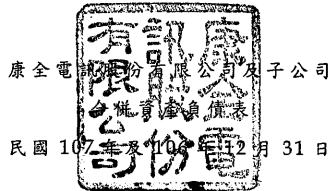 康全電訊股份有限公司及子公司
合併資產負債表
民國107年及106年12月31日
康全電
訊股份
有限公司